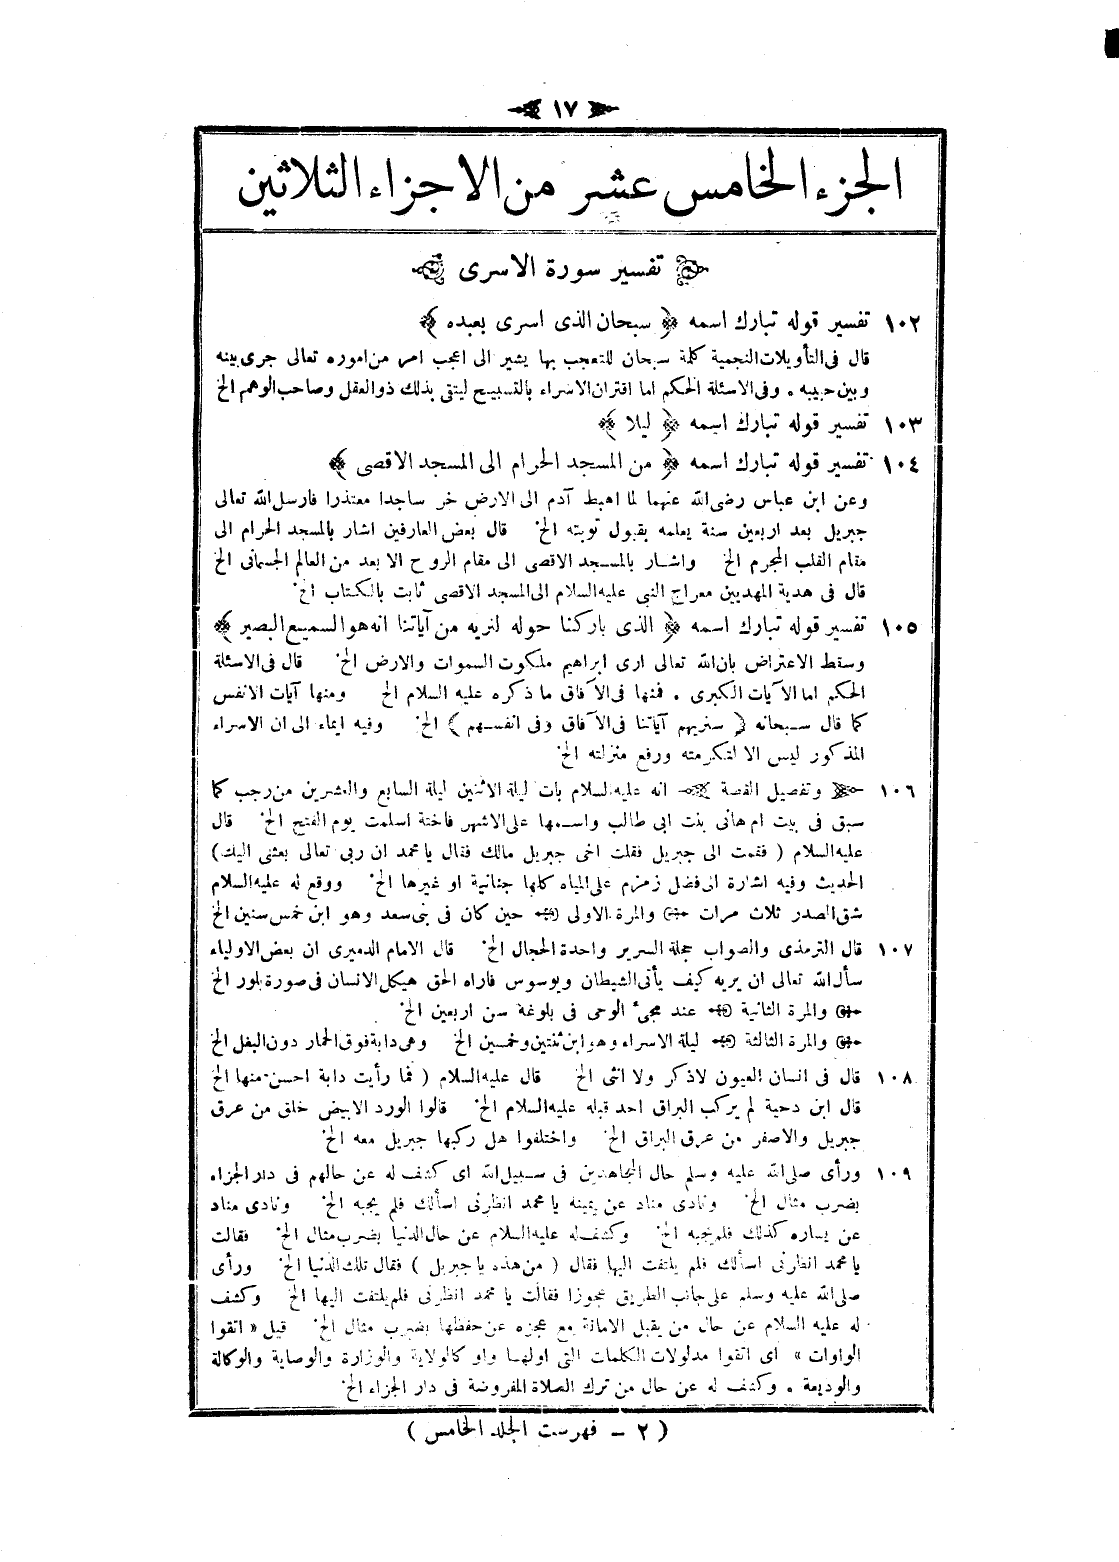 ١٧
الجزء الخامس عشر من الاجزاء الثلاثين
تفسير سورة الاسرى
١٠٢ تفسير قوله تبارك اسمه ﴿ سبحان الذى اسرى بعبده ﴾
قال فى التأويلات النجمية كلمة سبحان للتعجب بها يشير الى اعجب امر من اموره تعالى جرى بينه
وبين حبيبه . وفى الاسئلة الحكم اما اقتران الاسراء بالتسبيح ليتقى بذلك ذو العقل وصاحب الوهم الخ
١٠٣ تفسير قوله تبارك اسمه ﴿ ليلا ﴾
١٠٤ تفسير قوله تبارك اسمه ﴿ من المسجد الحرام الى المسجد الاقصى ﴾
وعن ابن عباس رضى الله عنهما لما اهبط آدم الى الارض خر ساجدا معتذرا فارسل الله تعالى
جبريل بعد اربعين سنة يعلمه بقبول توبته الخ قال بعض العارفين اشار بالمسجد الحرام الى
مقام القلب المحرم الخ واشار بالمسجد الاقصى الى مقام الروح الا بعد من العالم الجسمانى الخ
قال فى هدية المهديين معراج النبى عليه السلام الى المسجد الاقصى ثابت بالكتاب الخ
١٠٥ تفسير قوله تبارك اسمه ﴿ الذى باركنا حوله لنريه من آياتنا انه هو السميع البصير ﴾
وسقط الاعتراض بان الله تعالى ارى ابراهيم ملكوت السموات والارض الخ قال فى الاسئلة
الحكم اما الآيات الكبرى . فمنها فى الآفاق ما ذكره عليه السلام الخ ومنها آيات الانفس
كما قال سبحانه ( سنريهم آياتنا فى الآفاق وفى انفسهم ) الخ وفيه ايماء الى ان الاسراء
المذكور ليس الا لتكرمته ورفع منزلته الخ
١٠٦ وتفصيل القصة انه عليه السلام بات ليلة الاثنين ليلة السابع والعشرين من رجب كما
سبق فى بيت ام هانى بنت ابى طالب واسمها على الاشهر فاختة اسلمت يوم الفتح الخ قال
عليه السلام ( فقمت الى جبريل فقلت اخى جبريل مالك فقال يا محمد ان ربى تعالى بعثنى اليك )
الحديث وفيه اشارة الى فضل زمزم على المياه كلها جنانية او غيرها الخ ووقع له عليه السلام
شق الصدر ثلاث مرات والمرة الاولى حين كان فى بنى سعد وهو ابن خمس سنين الخ
١٠٧ قال الترمذى والصواب حجلة السرير واحدة الحجال الخ قال الامام الدميرى ان بعض الاولياء
سأل الله تعالى ان يريه كيف يأتى الشيطان ويوسوس فاراه الحق هيكل الانسان فى صورة بلور الخ
والمرة الثانية عند مجىء الوحى فى بلوغه سن اربعين الخ
والمرة الثالثة ليلة الاسراء وهو ابن ثنتين وخمسين الخ وهى دابة فوق الحمار دون البغل الخ
١٠٨ قال فى انسان العيون لاذكر ولا انثى الخ قال عليه السلام ( فما رأيت دابة احسن منها الخ
قال ابن دحية لم يركب البراق احد قبله عليه السلام الخ قالوا الورد الابيض خلق من عرق
جبريل والاصفر من عرق البراق الخ واختلفوا هل ركبها جبريل معه الخ
١٠٩ ورأى صلى الله عليه وسلم حال المجاهدين فى سبيل الله اى كشف له عن حالهم فى دار الجزاء
بضرب مثال الخ ونادى مناد عن يمينه يا محمد انظرنى اسألك فلم يجبه الخ ونادى مناد
عن يساره كذلك فلم يجبه الخ وكشف له عليه السلام عن حال الدنيا بضرب مثال الخ فقالت
يا محمد انظرنى اسألك فلم يلتفت اليها فقال ( من هذه يا جبريل ) فقال تلك الدنيا الخ ورأى
صلى الله عليه وسلم على جانب الطريق عجوزا فقالت يا محمد انظرنى فلم يلتفت اليها الخ وكشف
له عليه السلام عن حال من يقبل الامانة مع عجزه عن حفظها بضرب مثال الخ قيل « اتقوا
الواوات » اى اتقوا مدلولات الكلمات التى اولها واو كالولاية والوزارة والوصاية والوكالة
والوديعة . وكشف له عن حال من ترك الصلاة المفروضة فى دار الجزاء الخ
( ٢ – فهرست الجلد الخامس )